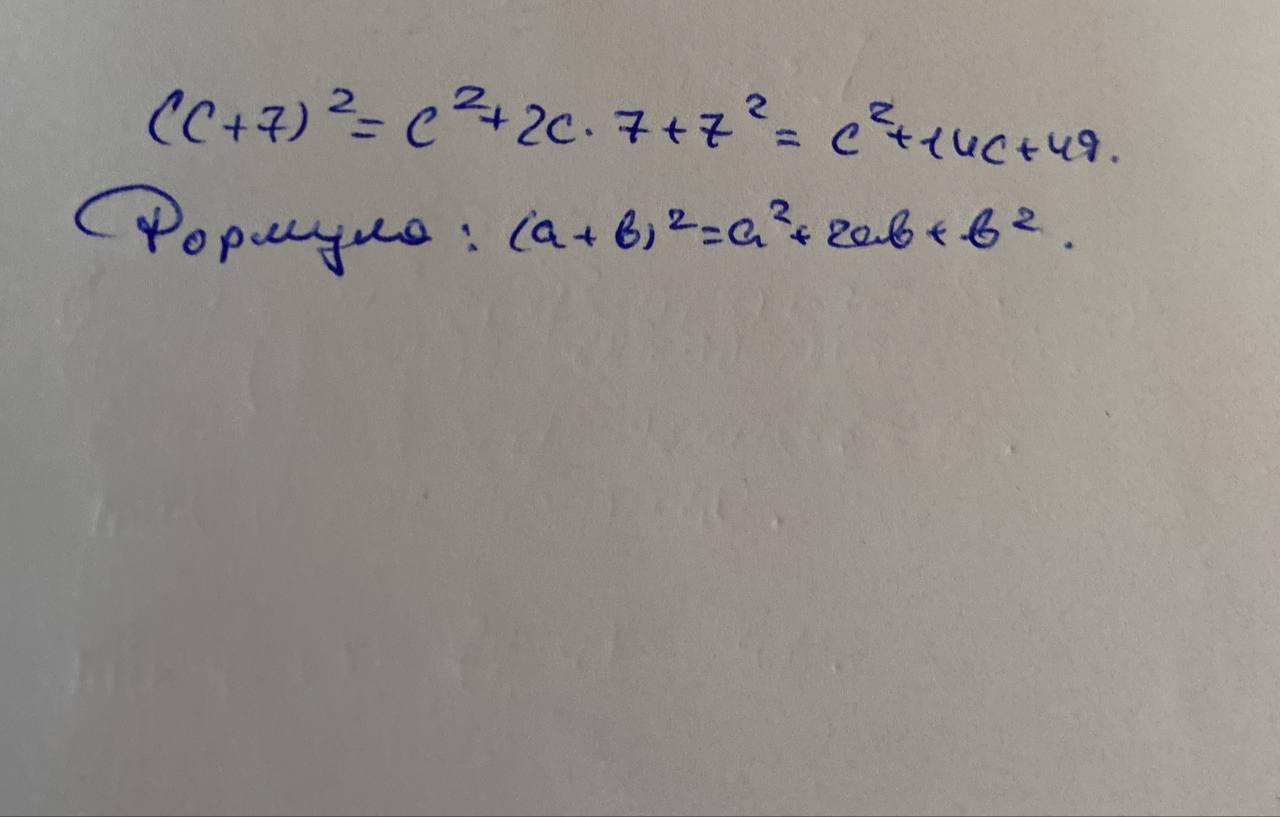 (c+7)²=c²+2c·7+7²=c²+14c+49.
Формула: (a+b)²=a²+2ab+b².